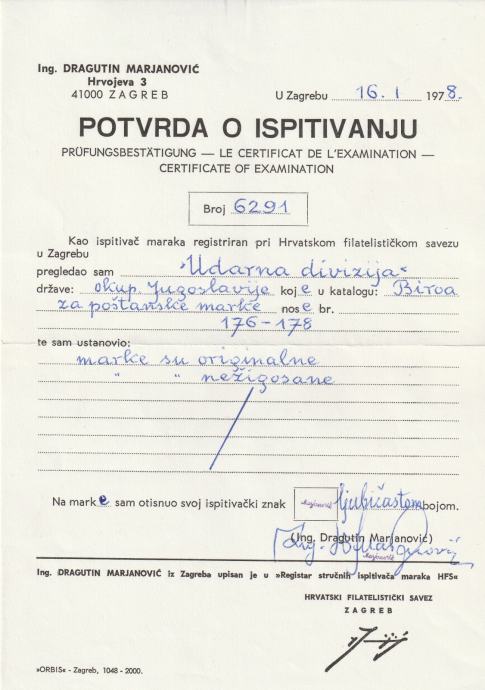 Ing. DRAGUTIN MARJANOVIĆ
Hrvojeva 3
41000 ZAGREB
U Zagrebu 16. I 1978.
POTVRDA O ISPITIVANJU
PRÜFUNGSBESTÄTIGUNG — LE CERTIFICAT DE L'EXAMINATION —
CERTIFICATE OF EXAMINATION
Broj 6291
Kao ispitivač maraka registriran pri Hrvatskom filatelističkom savezu
u Zagrebu
pregledao sam „Udarna divizija“
države: okup. Jugoslavije koje u katalogu: Biroa
za poštanske marke nose br.
176-178
te sam ustanovio:
marke su originalne
" " nežigosane
Na marke sam otisnuo svoj ispitivački znak Marjanović ljubičastom bojom.
(Ing. Dragutin Marjanović)
Ing. D. Marjanović
Marjanović
Ing. DRAGUTIN MARJANOVIĆ iz Zagreba upisan je u »Registar stručnih ispitivača maraka HFS«
HRVATSKI FILATELISTIČKI SAVEZ
ZAGREB
»ORBIS« - Zagreb, 1048 - 2000.